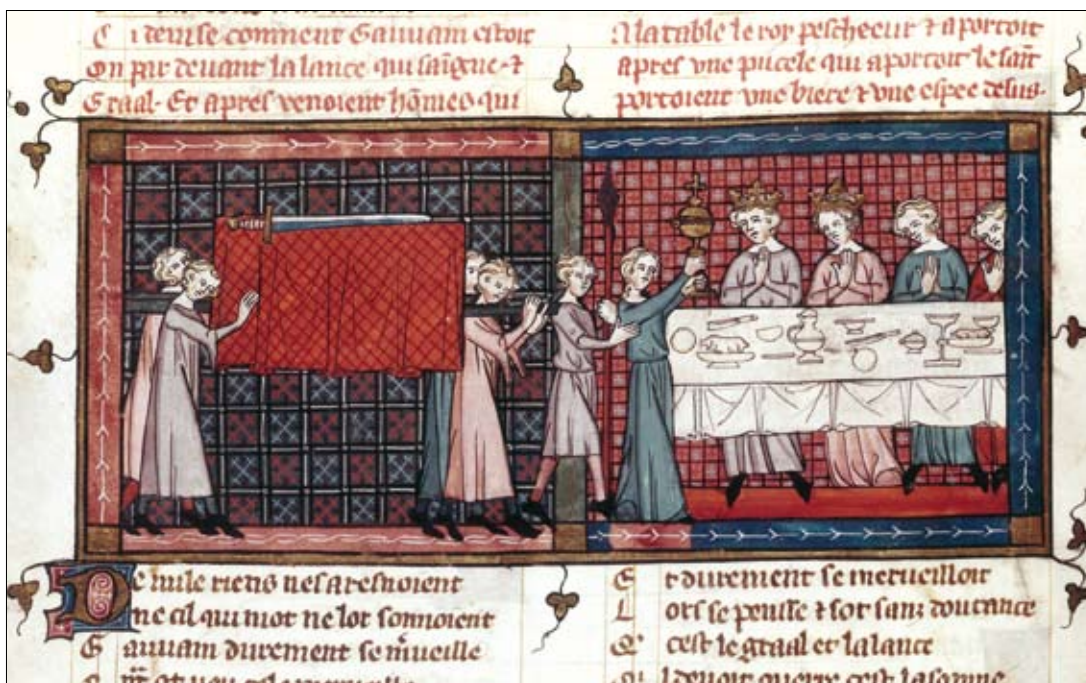 C i deuise comment Gauuain estoit
On par deuant la lance qui saingne ⁊
Graal. Et apres venoient hōmes qui
A la table le roy pescheeur ⁊ aportoit
apres vne pucele qui aportoit le saīt
portoient vne biere ⁊ vne espee desus.
De nule riens nes aresnoient
ne cil qui mot ne lot sonnoient
G auuain durement se m̄ueille
E t durement se merueilloit
L ors se pense ⁊ sot sanz doutance
Q' cest le graal et la lance